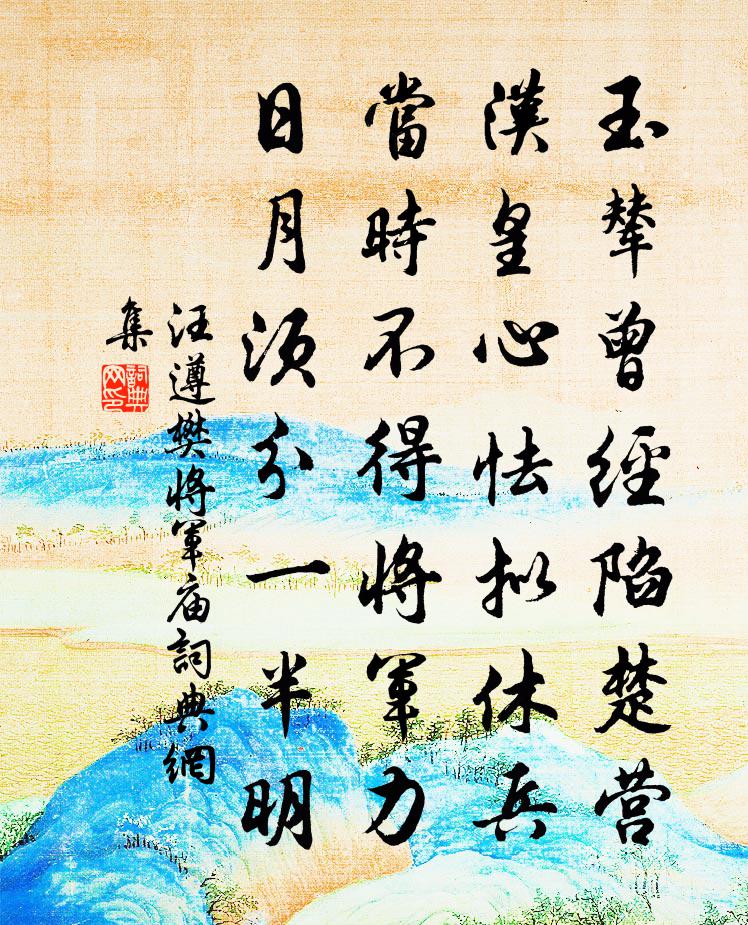 玉輦曾經陷楚营
漢皇心怯拟休兵
當時不得將軍力
日月须分一半明
汪遵樊將軍庙詞典網
集
詞典
网印